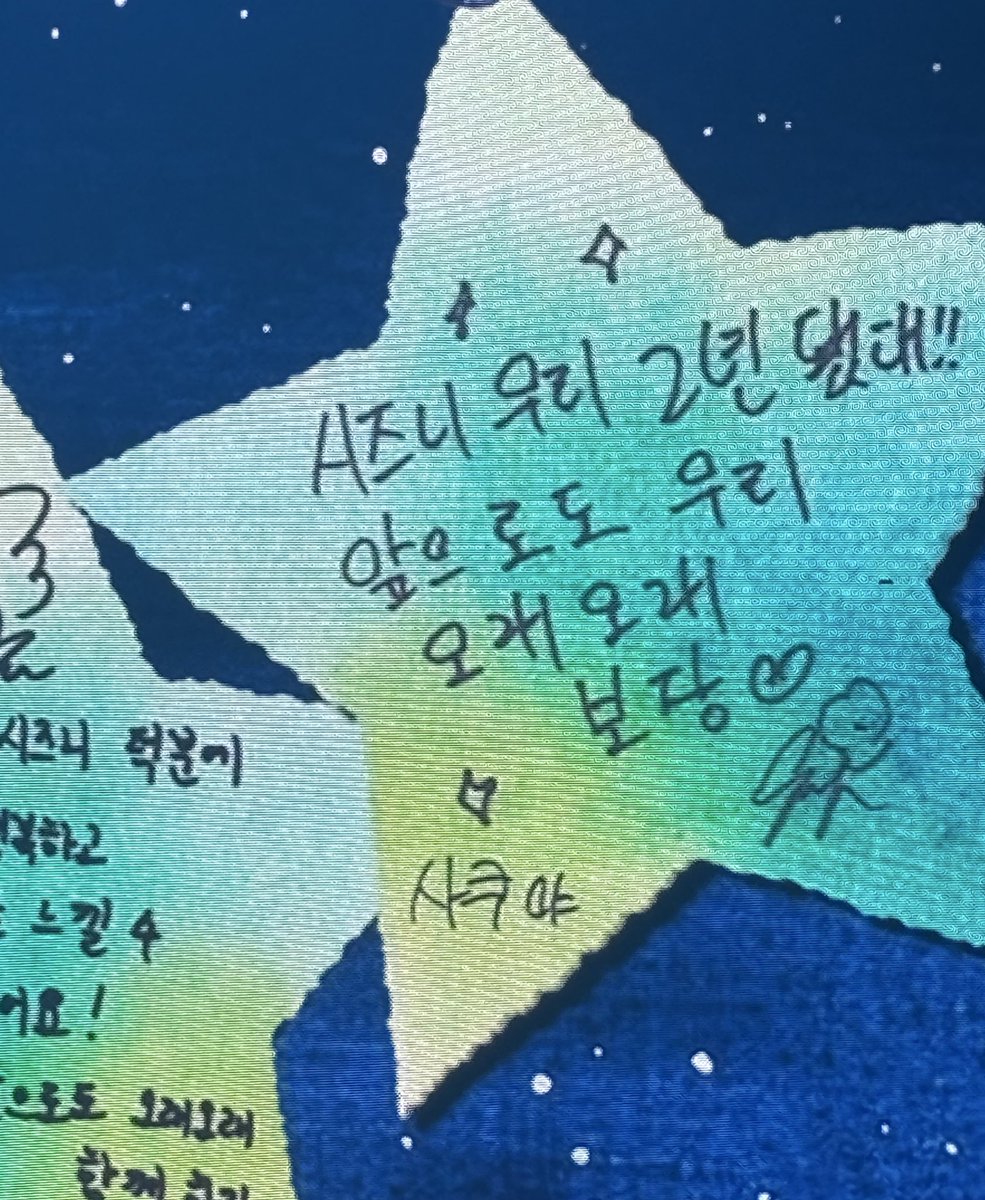 시즈니 우리 2년 됐대!!
앞으로도 우리
오래오래
보당♡
사쿠야
시즈니 덕분에
복하고
느낄 수
어요!
으로도 오래오래
함께